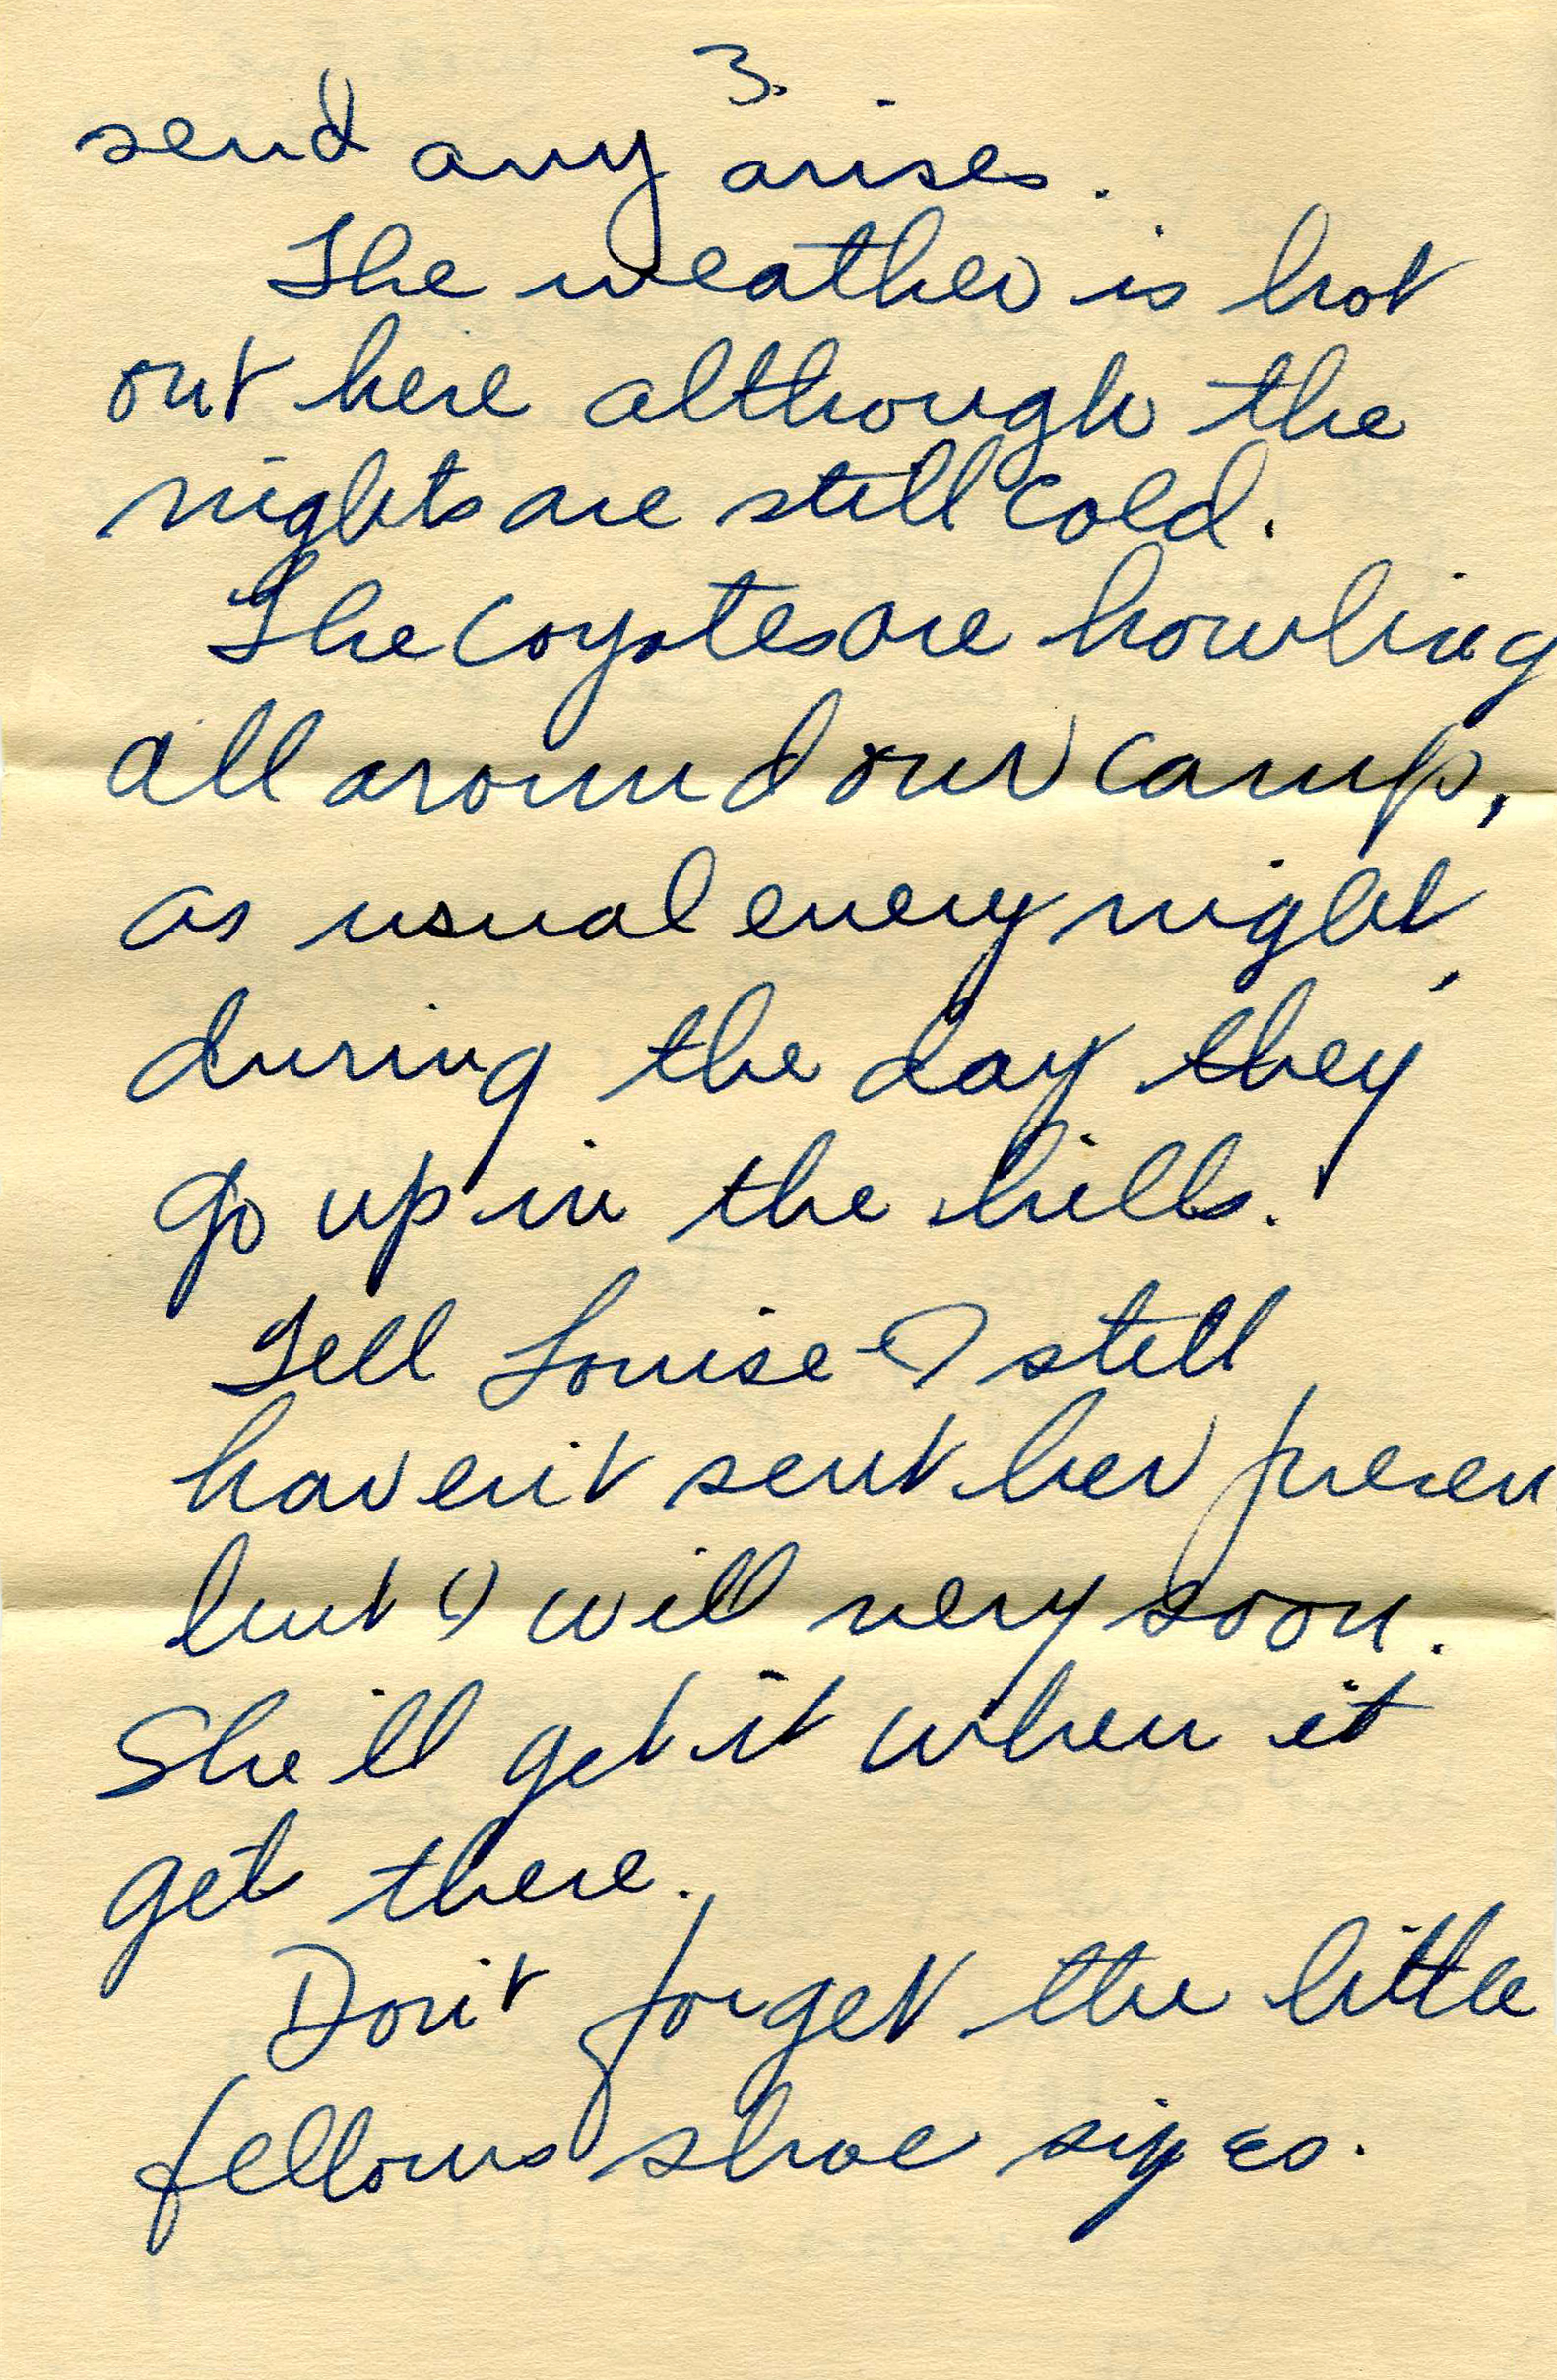 3.
send any arises.
The weather is hot
out here although the
nights are still cold.
The Coyotes are howling
all around our camp,
as usual every night,
during the day they
go up in the hills.
Tell Louise I still
haven't sent her presen
but I will very soon.
She'll get it when it
get there.
Don't forget the little
fellows shoe sizes.